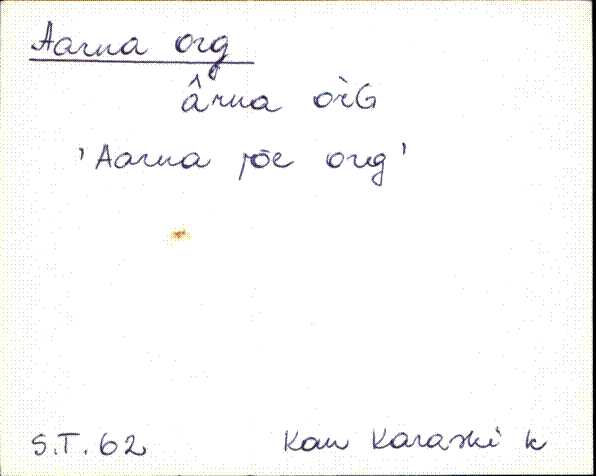 Aarna org
ârna or̀G
'Aarna jõe org'
S.T. 62 Kan Karaski k